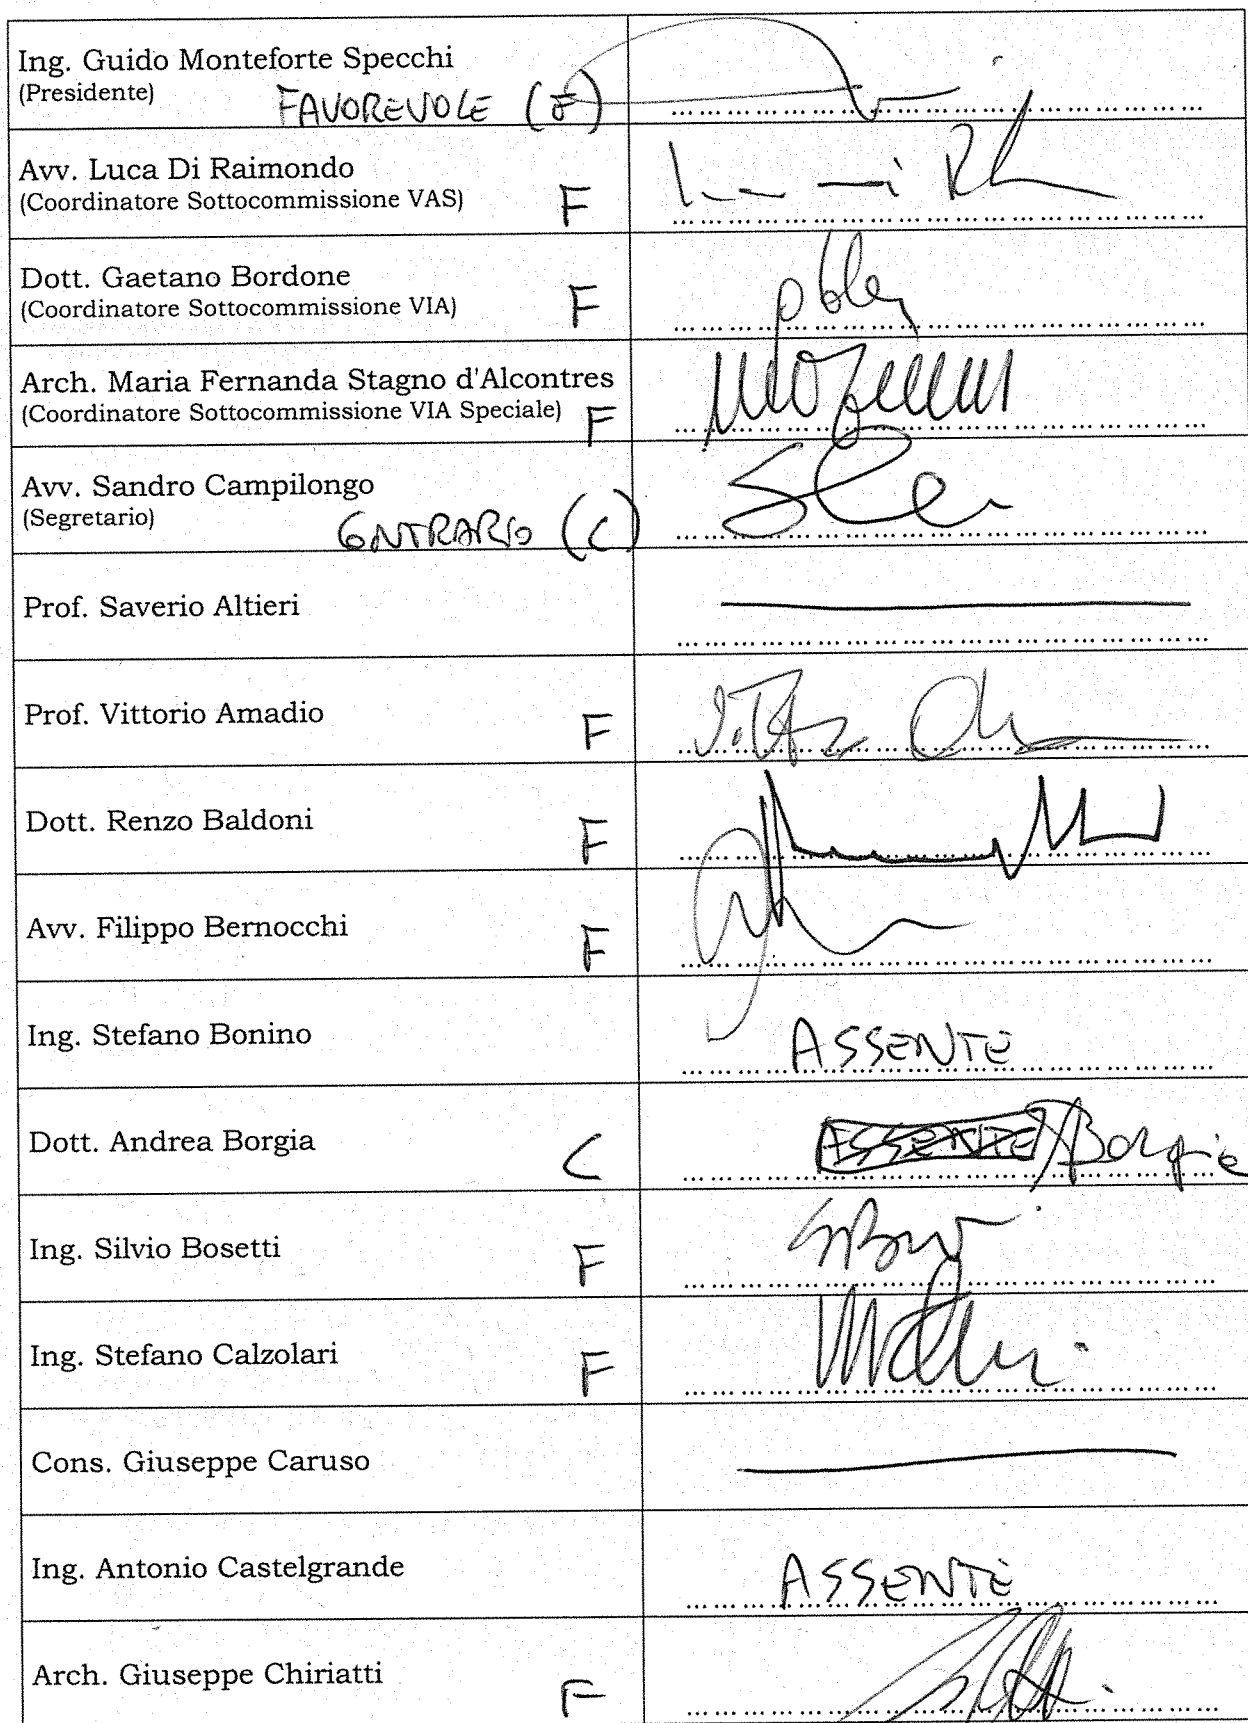 Ing. Guido Monteforte Specchi
(Presidente) FAVOREVOLE (F)
Avv. Luca Di Raimondo
(Coordinatore Sottocommissione VAS) F
Dott. Gaetano Bordone
(Coordinatore Sottocommissione VIA) F
Arch. Maria Fernanda Stagno d'Alcontres
(Coordinatore Sottocommissione VIA Speciale) F
Avv. Sandro Campilongo
(Segretario) CONTRARIO (C)
Prof. Saverio Altieri
Prof. Vittorio Amadio F
Dott. Renzo Baldoni F
Avv. Filippo Bernocchi F
Ing. Stefano Bonino ASSENTE
Dott. Andrea Borgia C ASSENTE Borgia
Ing. Silvio Bosetti F
Ing. Stefano Calzolari F
Cons. Giuseppe Caruso
Ing. Antonio Castelgrande ASSENTE
Arch. Giuseppe Chiriatti F